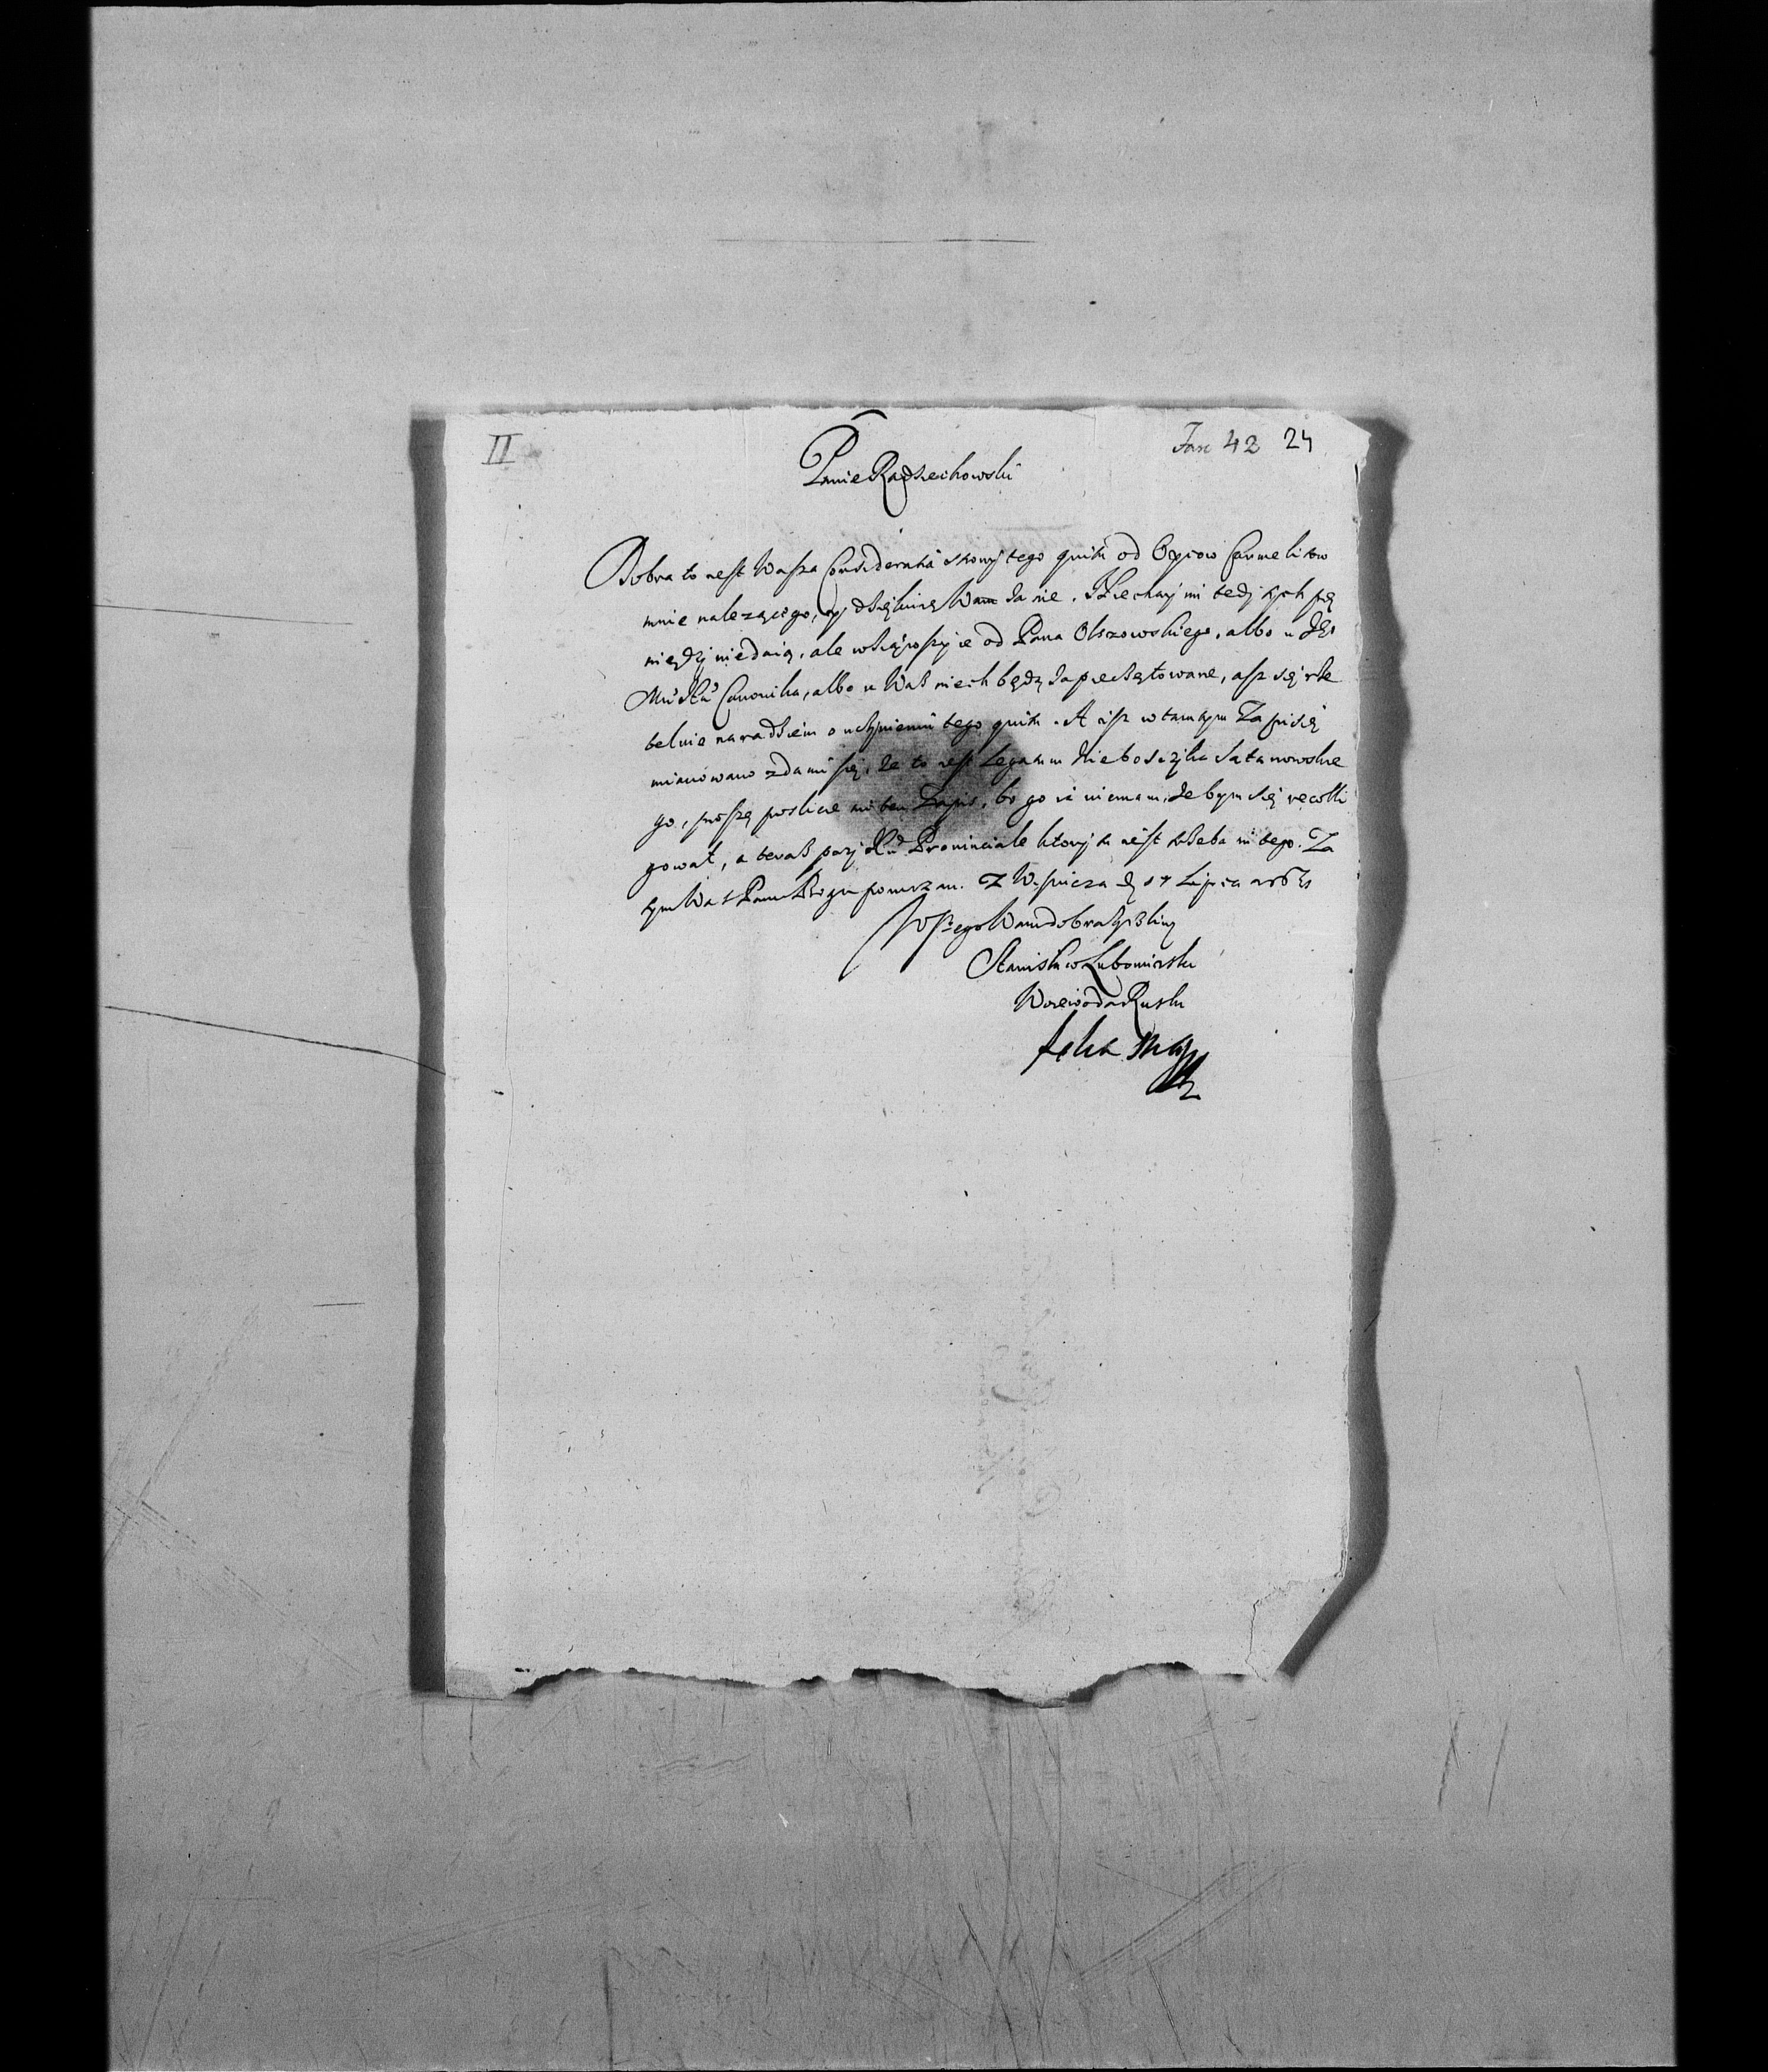 II
Fasc 42 24
Panie Radziechowski
Dobra to iest Wasza Consideratia strony tego quitu od Oycow Carmelitow
mnie nalezącego, y dziękuię Wam za nie. Niechay mi tedy tych pie
niędzy niedaią, ale wziąwszy ie od Pana Olszowskiego, albo u Je°
Mśći Xa Canonika, albo u Was niech będą zapieczętowane, asz się rze
telnie naradziem o uczynieniu tego quitu. A isz w tamtym Zapisie
mianowano zda mi się, że to iest Legatum Nieboszczyka Satanowskie
go, proszę poslicie mi ten Zapis, bo go ia niemam, żebym się recolli
gował, a teras przy Xdu Prowinciale ktory tu iest trzeba mi tego. Za
tym Was Panu Bogu poruczam. Z Wisnicza d 17 Lipca
Wszego Wam dobra życzliwy
Stanisław Lubomirski
Woiewoda Ruski
ręką swą